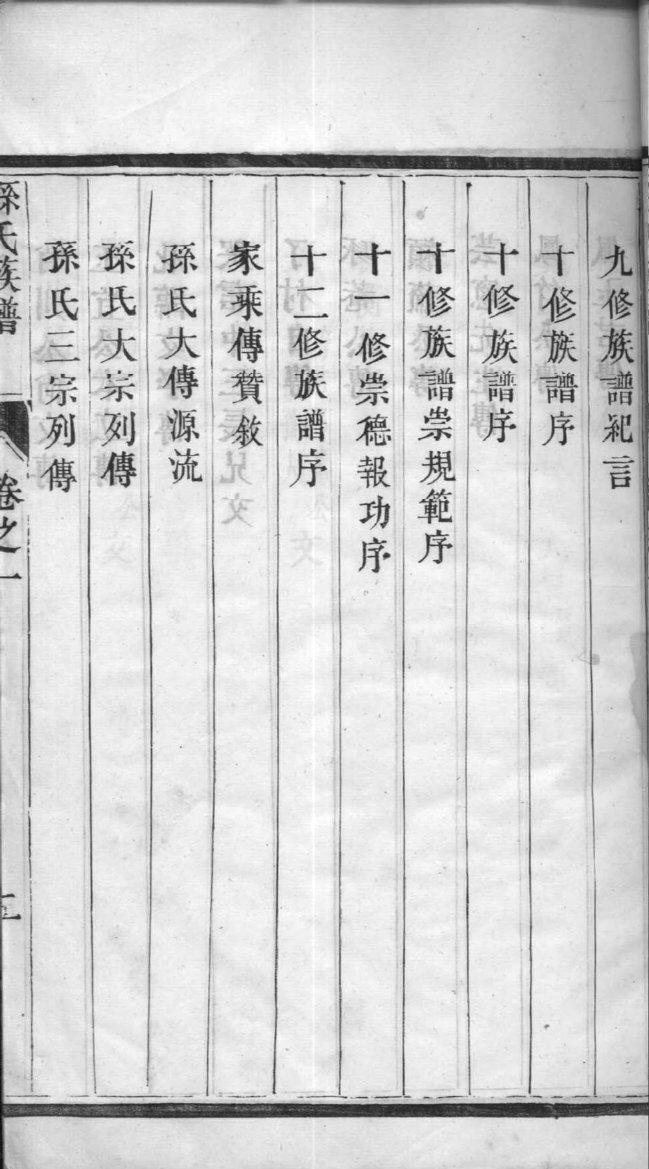 九修族譜紀言
十修族譜序
十修族譜序
十修族譜崇規範序
十一修崇德報功序
十二修族譜序
家乘傳贊敘
孫氏大傳源流
孫氏大宗列傳
孫氏三宗列傳
孫氏族譜
卷之一
五